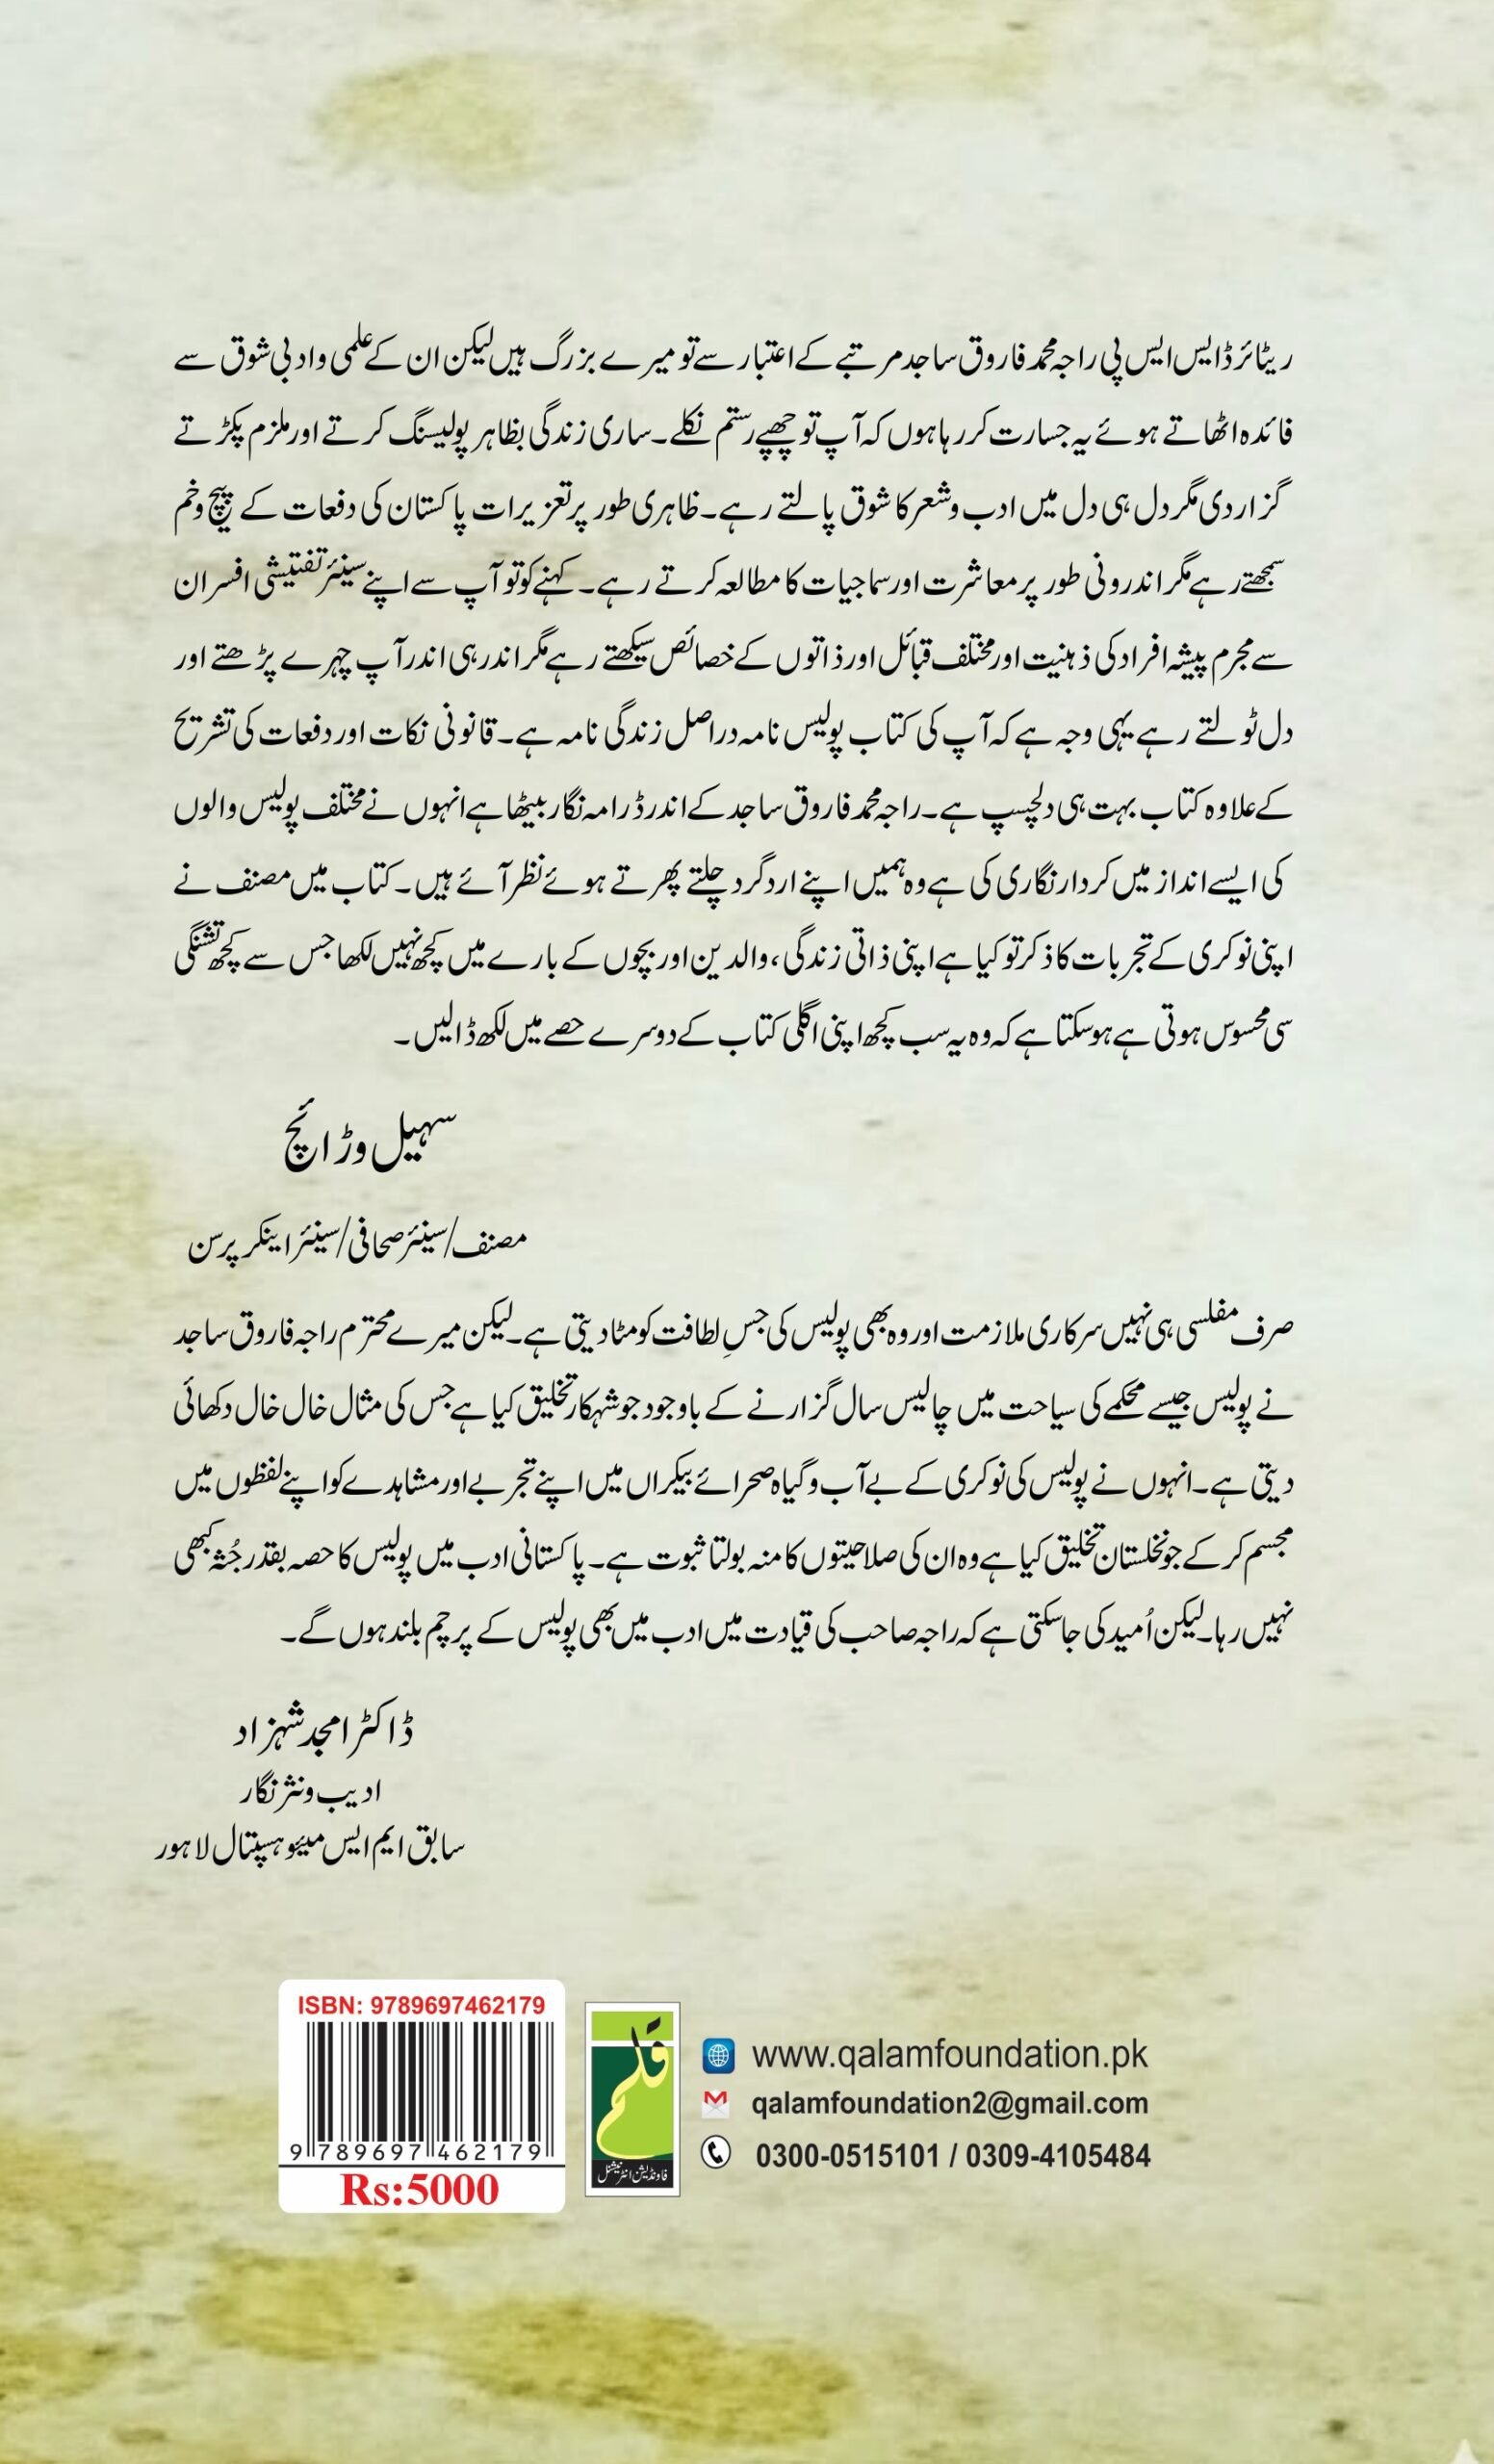 ریٹائرڈ ایس ایس پی راجہ محمد فاروق ساجد مرتبے کے اعتبار سے تو میرے بزرگ ہیں لیکن ان کے علمی و ادبی شوق سے
فائدہ اٹھاتے ہوئے یہ جسارت کر رہا ہوں کہ آپ تو چھپے رستم نکلے۔ ساری زندگی بظاہر پولیسنگ کرتے اور ملزم پکڑتے
گزار دی مگر دل ہی دل میں ادب و شعر کا شوق پالتے رہے۔ ظاہری طور پر تعزیرات پاکستان کی دفعات کے پیچ و خم
سمجھتے رہے مگر اندرونی طور پر معاشرت اور سماجیات کا مطالعہ کرتے رہے۔ کہنے کو تو آپ سے اپنے سینئر تفتیشی افسران
سے مجرم پیشہ افراد کی ذہنیت اور مختلف قبائل اور ذاتوں کے خصائص سیکھتے رہے مگر اندر ہی اندر آپ چہرے پڑھتے اور
دل ٹولتے رہے یہی وجہ ہے کہ آپ کی کتاب پولیس نامہ دراصل زندگی نامہ ہے۔ قانونی نکات اور دفعات کی تشریح
کے علاوہ کتاب بہت ہی دلچسپ ہے۔ راجہ محمد فاروق ساجد کے اندر ڈرامہ نگار بیٹھا ہے انہوں نے مختلف پولیس والوں
کی ایسے انداز میں کردار نگاری کی ہے وہ ہمیں اپنے ارد گرد چلتے پھرتے ہوئے نظر آئے ہیں۔ کتاب میں مصنف نے
اپنی نوکری کے تجربات کا ذکر تو کیا ہے اپنی ذاتی زندگی، والدین اور بچوں کے بارے میں کچھ نہیں لکھا جس سے کچھ تشنگی
سی محسوس ہوتی ہے ہو سکتا ہے کہ وہ یہ سب کچھ اپنی اگلی کتاب کے دوسرے حصے میں لکھ ڈالیں۔
سہیل وڑائچ
مصنف/سینئر صحافی/سینئر اینکر پرسن
صرف مفلسی ہی نہیں سرکاری ملازمت اور وہ بھی پولیس کی جسِ لطافت کو مٹا دیتی ہے۔ لیکن میرے محترم راجہ فاروق ساجد
نے پولیس جیسے محکمے کی سیاحت میں چالیس سال گزارنے کے باوجود جو شہکار تخلیق کیا ہے جس کی مثال خال خال دکھائی
دیتی ہے۔ انہوں نے پولیس کی نوکری کے بے آب و گیاہ صحرائے بیکراں میں اپنے تجربے اور مشاہدے کو اپنے لفظوں میں
مجسم کر کے جو نخلستان تخلیق کیا ہے وہ ان کی صلاحیتوں کا منہ بولتا ثبوت ہے۔ پاکستانی ادب میں پولیس کا حصہ بقدر جُثہ کبھی
نہیں رہا۔ لیکن اُمید کی جا سکتی ہے کہ راجہ صاحب کی قیادت میں ادب میں بھی پولیس کے پرچم بلند ہوں گے۔
ڈاکٹر امجد شہزاد
ادیب و نثر نگار
سابق ایم ایس میئو ہسپتال لاہور
ISBN: 9789697462179
9 789697 462179
Rs:5000
قلم
فاونڈیشن انٹرنیشنل
www.qalamfoundation.pk
qalamfoundation2@gmail.com
0300-0515101 / 0309-4105484